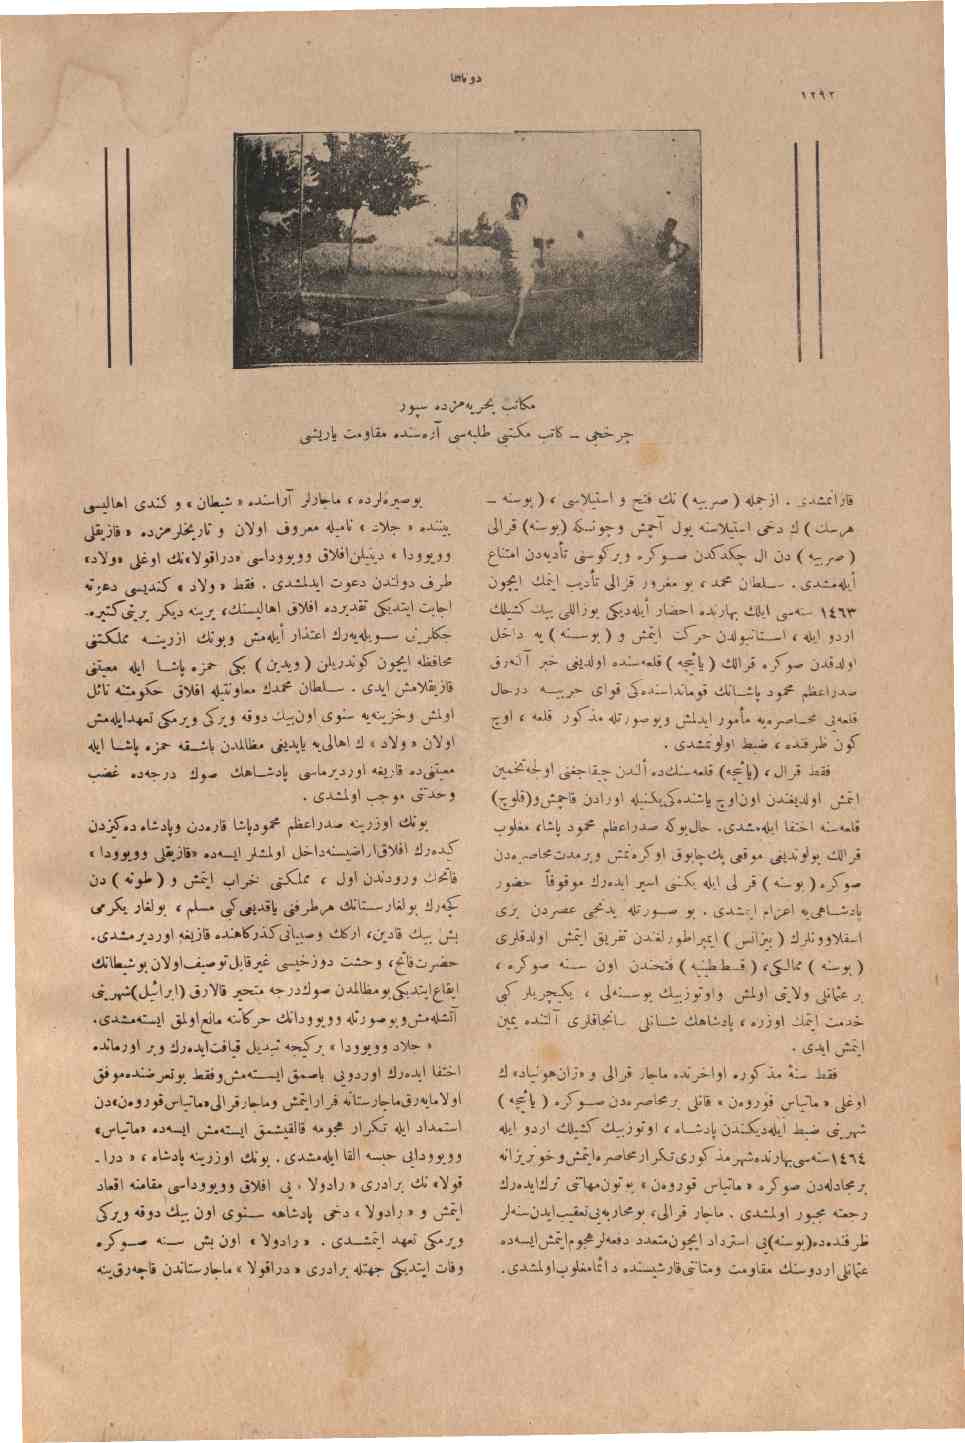 دوناننما
١٢٩٢
مكاتب بحریه‌مزده سپور
چرخجی ــ كاتب مكتبی طلبه‌سی آره‌سنده مقاومت یاریشی
قازانمشدی . ازجمله ( صربیه ) نك فتح و استیلاسی ، ( بوسنه ــ
هرسك ) ك دخی استیلاسنه یول آچمش وچونسكه (بوسنه) قرالی
( صربیه ) دن ال چكدكدن صوكره ویركوسنی تأدیه‌دن امتناع
أیله‌مشدی . سلطان محمد ، بو مغرور قرالی تأدیب ایتمك ایچون
١٤٦٣ سنه‌سی ایلك بهارنده احضار أیله‌دیكی یوزاللی بیك كشیلك
اردو ایله ، استانبولدن حركت ایتمش و ( بوسنه ) یه داخل
اولدقدن صوكره قرالك ( یایچه ) قلعه‌سنده اولدیغی خبر آلەرق
صدراعظم محمود پاشانك قومانداسنده‌كی قوای حربیه درحال
قلعه‌یی محاصره‌یه مأمور ایدلمش وبوصورتله مذكور قلعه ، اوچ
كون ظرفنده ، ضبط اولونمشدی .
فقط قرال ، (یایچه) قلعه‌سنك‌ده ألدن چیقاجغنی اولجه‌تخمین
ایتمش اولدیغندن اون‌اوچ یاشنده‌كی‌یكنیله اورادن قاچمش‌و(قلوچ)
قلعه‌سنه اختفا ایله‌مشدی. حال‌بوكه صدراعظم محمود پاشا، مغلوب
قرالك بولوندیغی موقعی پك‌چابوق اوكره‌نمش وبرمدت‌محاصره‌دن
صوكره ( بوسنه ) قرالی ایله یكنی اسیر ایده‌رك موقوفاً حضور
پادشاهی‌یه اعزام ایتمشدی . بو صورتله یدنجی عصردن بری
اسقلاوونلرك ( بیزانس ) ایمپراطورلغندن تفریق ایتمش اولدقلری
( بوسنه ) ممالكی، ( قسطنطینیه ) فتحندن اون سنه صوكره ،
بر عثمانلی ولایتی اولمش واوتوزبیك بوسنه‌لی ، یكیچریلر كبی
خدمت ایتمك اوزره ، پادشاهك شانلی سانجاقلری آلتنده یمین
ایتمش ایدی .
فقط سنۀ مذكوره اواخرنده ماجار قرالی و «ژان‌هونیاد» ك
اوغلی « ماتیاس قوروه‌ن » قانلی بر محاصره‌دن صوكره ( یایچه )
شهرینی ضبط أیله‌دیكندن پادشاه ، اوتوزبیك كشیلك اردو ایله
١٤٦٤سنه‌سی‌بهارنده‌شهر مذكوری‌تكرار محاصره‌ایتمش‌و خونریزانه
بر مجادله‌دن صوكره « ماتیاس قوروه‌ن » بوتون‌مهماتنی ترك‌ایده‌رك
رجعته مجبور اولمشدی . ماجار قرالی، بومحاربه‌یی‌تعقیب‌ایدن‌سنه‌لر
ظرفنده‌ده(بوسنه)یی استرداد ایچون‌متعدد دفعه‌لر هجوم‌ایتمش‌ایسه‌ده
عثمانلی اردوسنك مقاومت ومتانتی‌قارشیسنده دائمامغلوب‌اولمشدی.
بوصیره‌لرده ، ماجارلر آراسنده « شیطان » و كندی اهالیسی
بیننده « جلاد » نامیله معروف اولان و تاریخلرمزده « قازیقلی
وویوودا » دینیلن‌افلاق وویووداسی «دراقولا»نك اوغلی «ولاد»
طرف دولتدن دعوت ایدلمشدی . فقط « ولاد » كندیسی دعوته
اجابت ایتدیكی تقدیرده افلاق اهالیسنك، یرینه دیكر برینی‌كتیره‌ـ
جكلرینی سویله‌یه‌رك اعتذار أیله‌مش وبونك اوزرینه مملكتنی
محافظه ایچون كوندریلن ( ویدین ) بكی حمزه پاشا ایله معیتنی
قازیقلامش ایدی . سلطان محمدك معاونتیله افلاق حكومتنه نائل
اولمش وخزینه‌یه سنوی اون‌بیك دوقه ویركی ویرمكی تعهدایله‌مش
اولان « ولاد » ك اهالی‌یه یاپدیغی مظالمدن باشقه حمزه پاشا ایله
معیتنی‌ده قازیغه اوردیرماسی پادشاهك صوك درجه‌ده غضب
وحدتنی موجب اولمشدی .
بونك اوزرینه صدراعظم محمودپاشا قاره‌دن وپادشاه ده‌كزدن
كیده‌رك افلاق‌اراضیسنه‌داخل اولمشلر ایسه‌ده «قازیقلی وویوودا»
فاتحك ورودندن اول ، مملكتی خراب ایتمش و ( طونه ) دن
كچه‌رك بولغارستانك هرطرفنی یاقدیغی‌كبی مسلم ، بولغار یكرمی
بش بیك قادین، اركك وصبیانی‌كذركاهنده قازیغه اوردیرمشدی.
حضرت‌فاتح، وحشت دوزخیسی غیرقابل‌توصیف‌اولان بوشیطانك
ایقاع‌ایتدیكی‌بومظالمدن صوك‌درجه متحیر قالارق (ابرائیل)شهرینی
آتشله‌مش‌وبوصورتله وویوودانك حركاتنه مانع‌اولمق ایسته‌مشدی.
« جلاد وویوودا » بركیجه تبدیل قیافت‌ایده‌رك وبر اورمانده
اختفا ایده‌رك اوردویی باصمق ایسته‌مش‌وفقط بوتعرضنده‌موفق
اولامایه‌رق‌ماجارستانه فرارایتمش وماجارقرالی«ماتیاس‌قوروه‌ن»دن
استمداد ایله تكرار هجومه قالقیشمق ایسته‌مش ایسه‌ده «ماتیاس»
وویودایی حبسه القا ایله‌مشدی . بونك اوزرینه پادشاه ، « درا ـ
قولا» نك برادری « رادولا » یی افلاق وویووداسی مقامنه اقعاد
ایتمش و « رادولا » دخی پادشاهه سنوی اون بیك دوقه ویركی
ویرمكی تعهد ایتمشدی . « رادولا » اون بش سنه صوكره
وفات ایتدیكی جهتله برادری « دراقولا » ماجارستاندن قاچه‌رق‌ینه